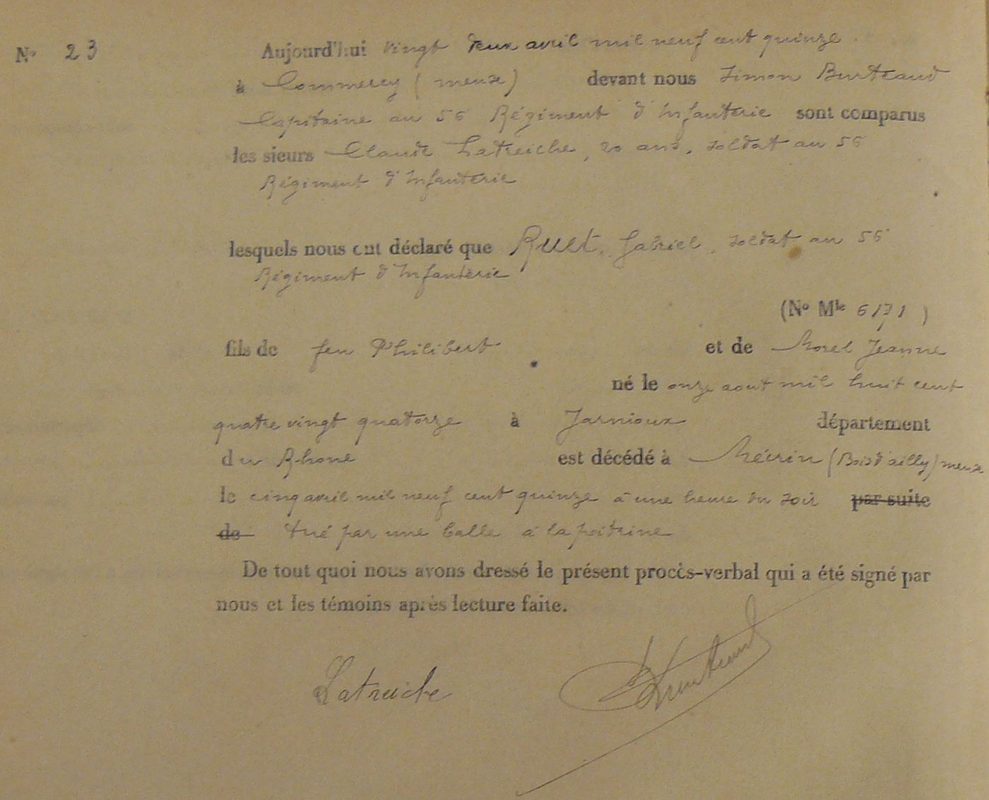 Nº 23
Aujourd'hui vingt deux avril mil neuf cent quinze.
à Commercy (meuse) devant nous Simon Burteaud
Capitaine au 56 Régiment d'Infanterie sont comparus
les sieurs Claude Latreiche, 20 ans, soldat au 56
Régiment d'Infanterie
lesquels nous ont déclaré que Ruet, Gabriel, soldat au 56
Régiment d'Infanterie
(Nº Mle 6171)
fils de feu Philibert et de Morel Jeanne
né le onze aout mil huit cent
quatre vingt quatorze à Jarnioux département
du Rhone est décédé à Mécrin (Bois d'ailly) meuse
le cinq avril mil neuf cent quinze à une heure du soir par suite
de tué par une balle à la poitrine
De tout quoi nous avons dressé le présent procès-verbal qui a été signé par
nous et les témoins après lecture faite.
Latreiche